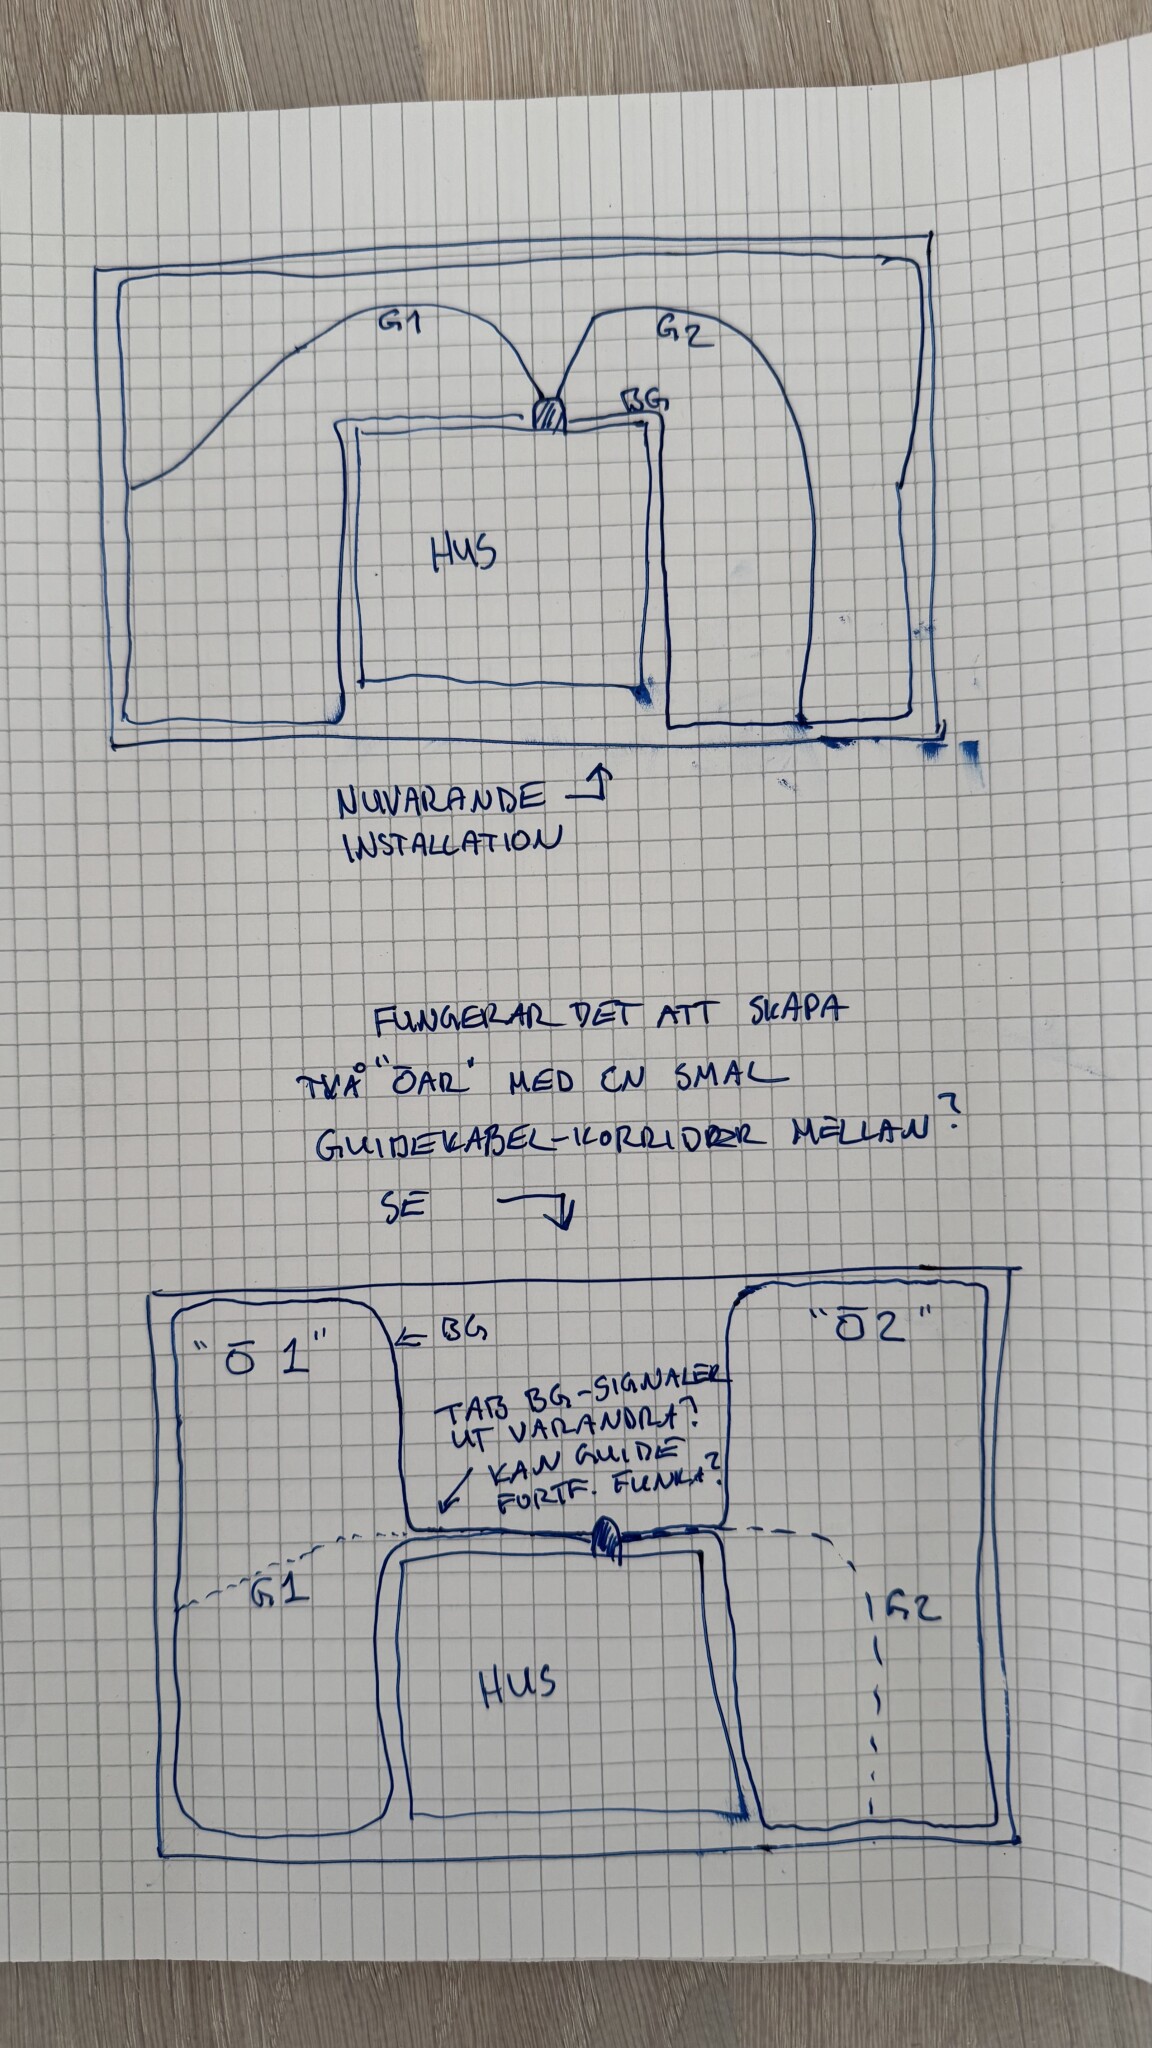 G1
G2
BG
HUS
NUVARANDE
INSTALLATION
FUNGERAR DET ATT SKAPA
TVÅ "ÖAR" MED EN SMAL
GUIDEKABEL-KORRIDOR MELLAN?
SE
"Ö 1"
BG
"Ö2"
TAR BG-SIGNALER
UT VARANDRA?
KAN GUIDE
FORTF. FUNKA?
G1
G2
HUS